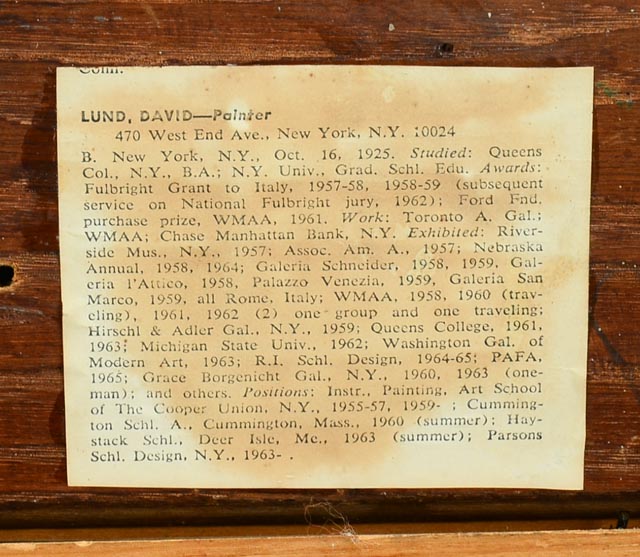 Conn.
LUND, DAVID—Painter
470 West End Ave., New York, N.Y. 10024
B. New York, N.Y., Oct. 16, 1925. Studied: Queens
Col., N.Y., B.A.; N.Y. Univ., Grad. Schl. Edu. Awards:
Fulbright Grant to Italy, 1957-58, 1958-59 (subsequent
service on National Fulbright jury, 1962); Ford Fnd.
purchase prize, WMAA, 1961. Work: Toronto A. Gal.;
WMAA; Chase Manhattan Bank, N.Y. Exhibited: River-
side Mus., N.Y., 1957; Assoc. Am. A., 1957; Nebraska
Annual, 1958, 1964; Galeria Schneider, 1958, 1959, Gal-
eria l'Attico, 1958, Palazzo Venezia, 1959, Galeria San
Marco, 1959, all Rome, Italy; WMAA, 1958, 1960 (trav-
eling), 1961, 1962 (2) one group and one traveling;
Hirschl & Adler Gal., N.Y., 1959; Queens College, 1961,
1963; Michigan State Univ., 1962; Washington Gal. of
Modern Art, 1963; R.I. Schl. Design, 1964-65; PAFA,
1965; Grace Borgenicht Gal., N.Y., 1960, 1963 (one-
man); and others. Positions: Instr., Painting, Art School
of The Cooper Union, N.Y., 1955-57, 1959- ; Cumming-
ton Schl. A., Cummington, Mass., 1960 (summer); Hay-
stack Schl., Deer Isle, Me., 1963 (summer); Parsons
Schl. Design, N.Y., 1963- .